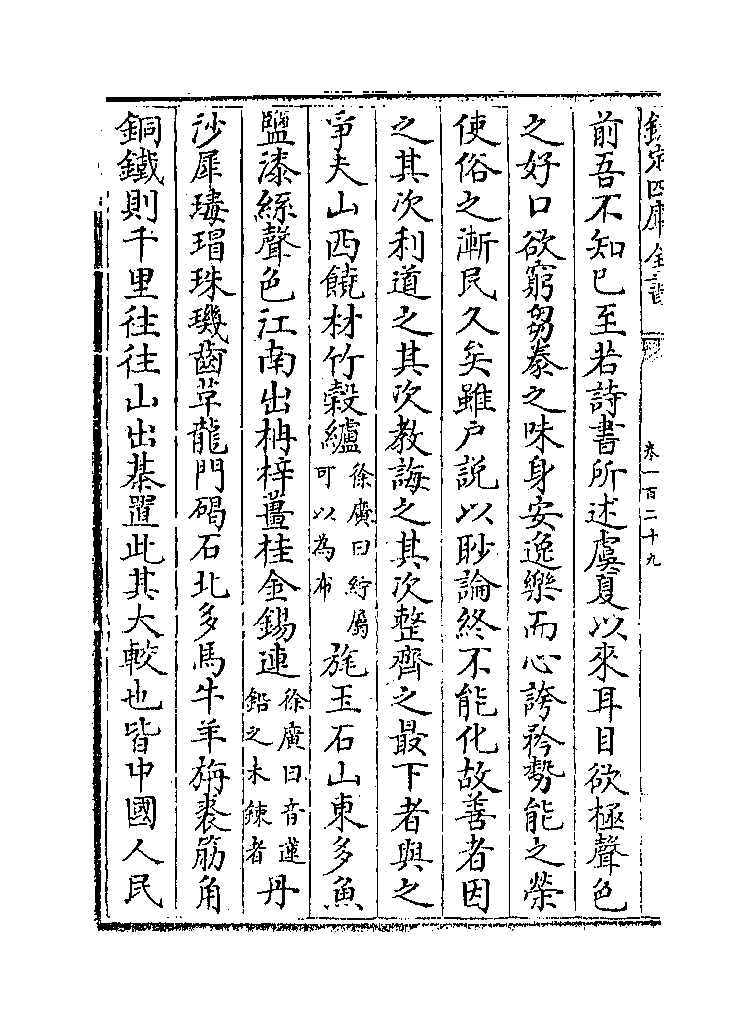 欽定四庫全書
卷一百二十九
前吾不知已至若詩書所述虞夏以來耳目欲極聲色
之好口欲窮芻豢之味身安逸樂而心誇矜勢能之榮
使俗之漸民久矣雖户說以眇論終不能化故善者因
之其次利道之其次教誨之其次整齊之最下者與之
爭夫山西饒材竹榖纑徐廣曰紵屬可以為布旄玉石山東多魚
鹽漆絲聲色江南出枏梓薑桂金錫連徐廣曰音蓮鉛之未鍊者丹
沙犀瑇瑁珠璣齒革龍門碣石北多馬牛羊旃裘筋角
銅鐵則千里往往山出棊置此其大較也皆中國人民